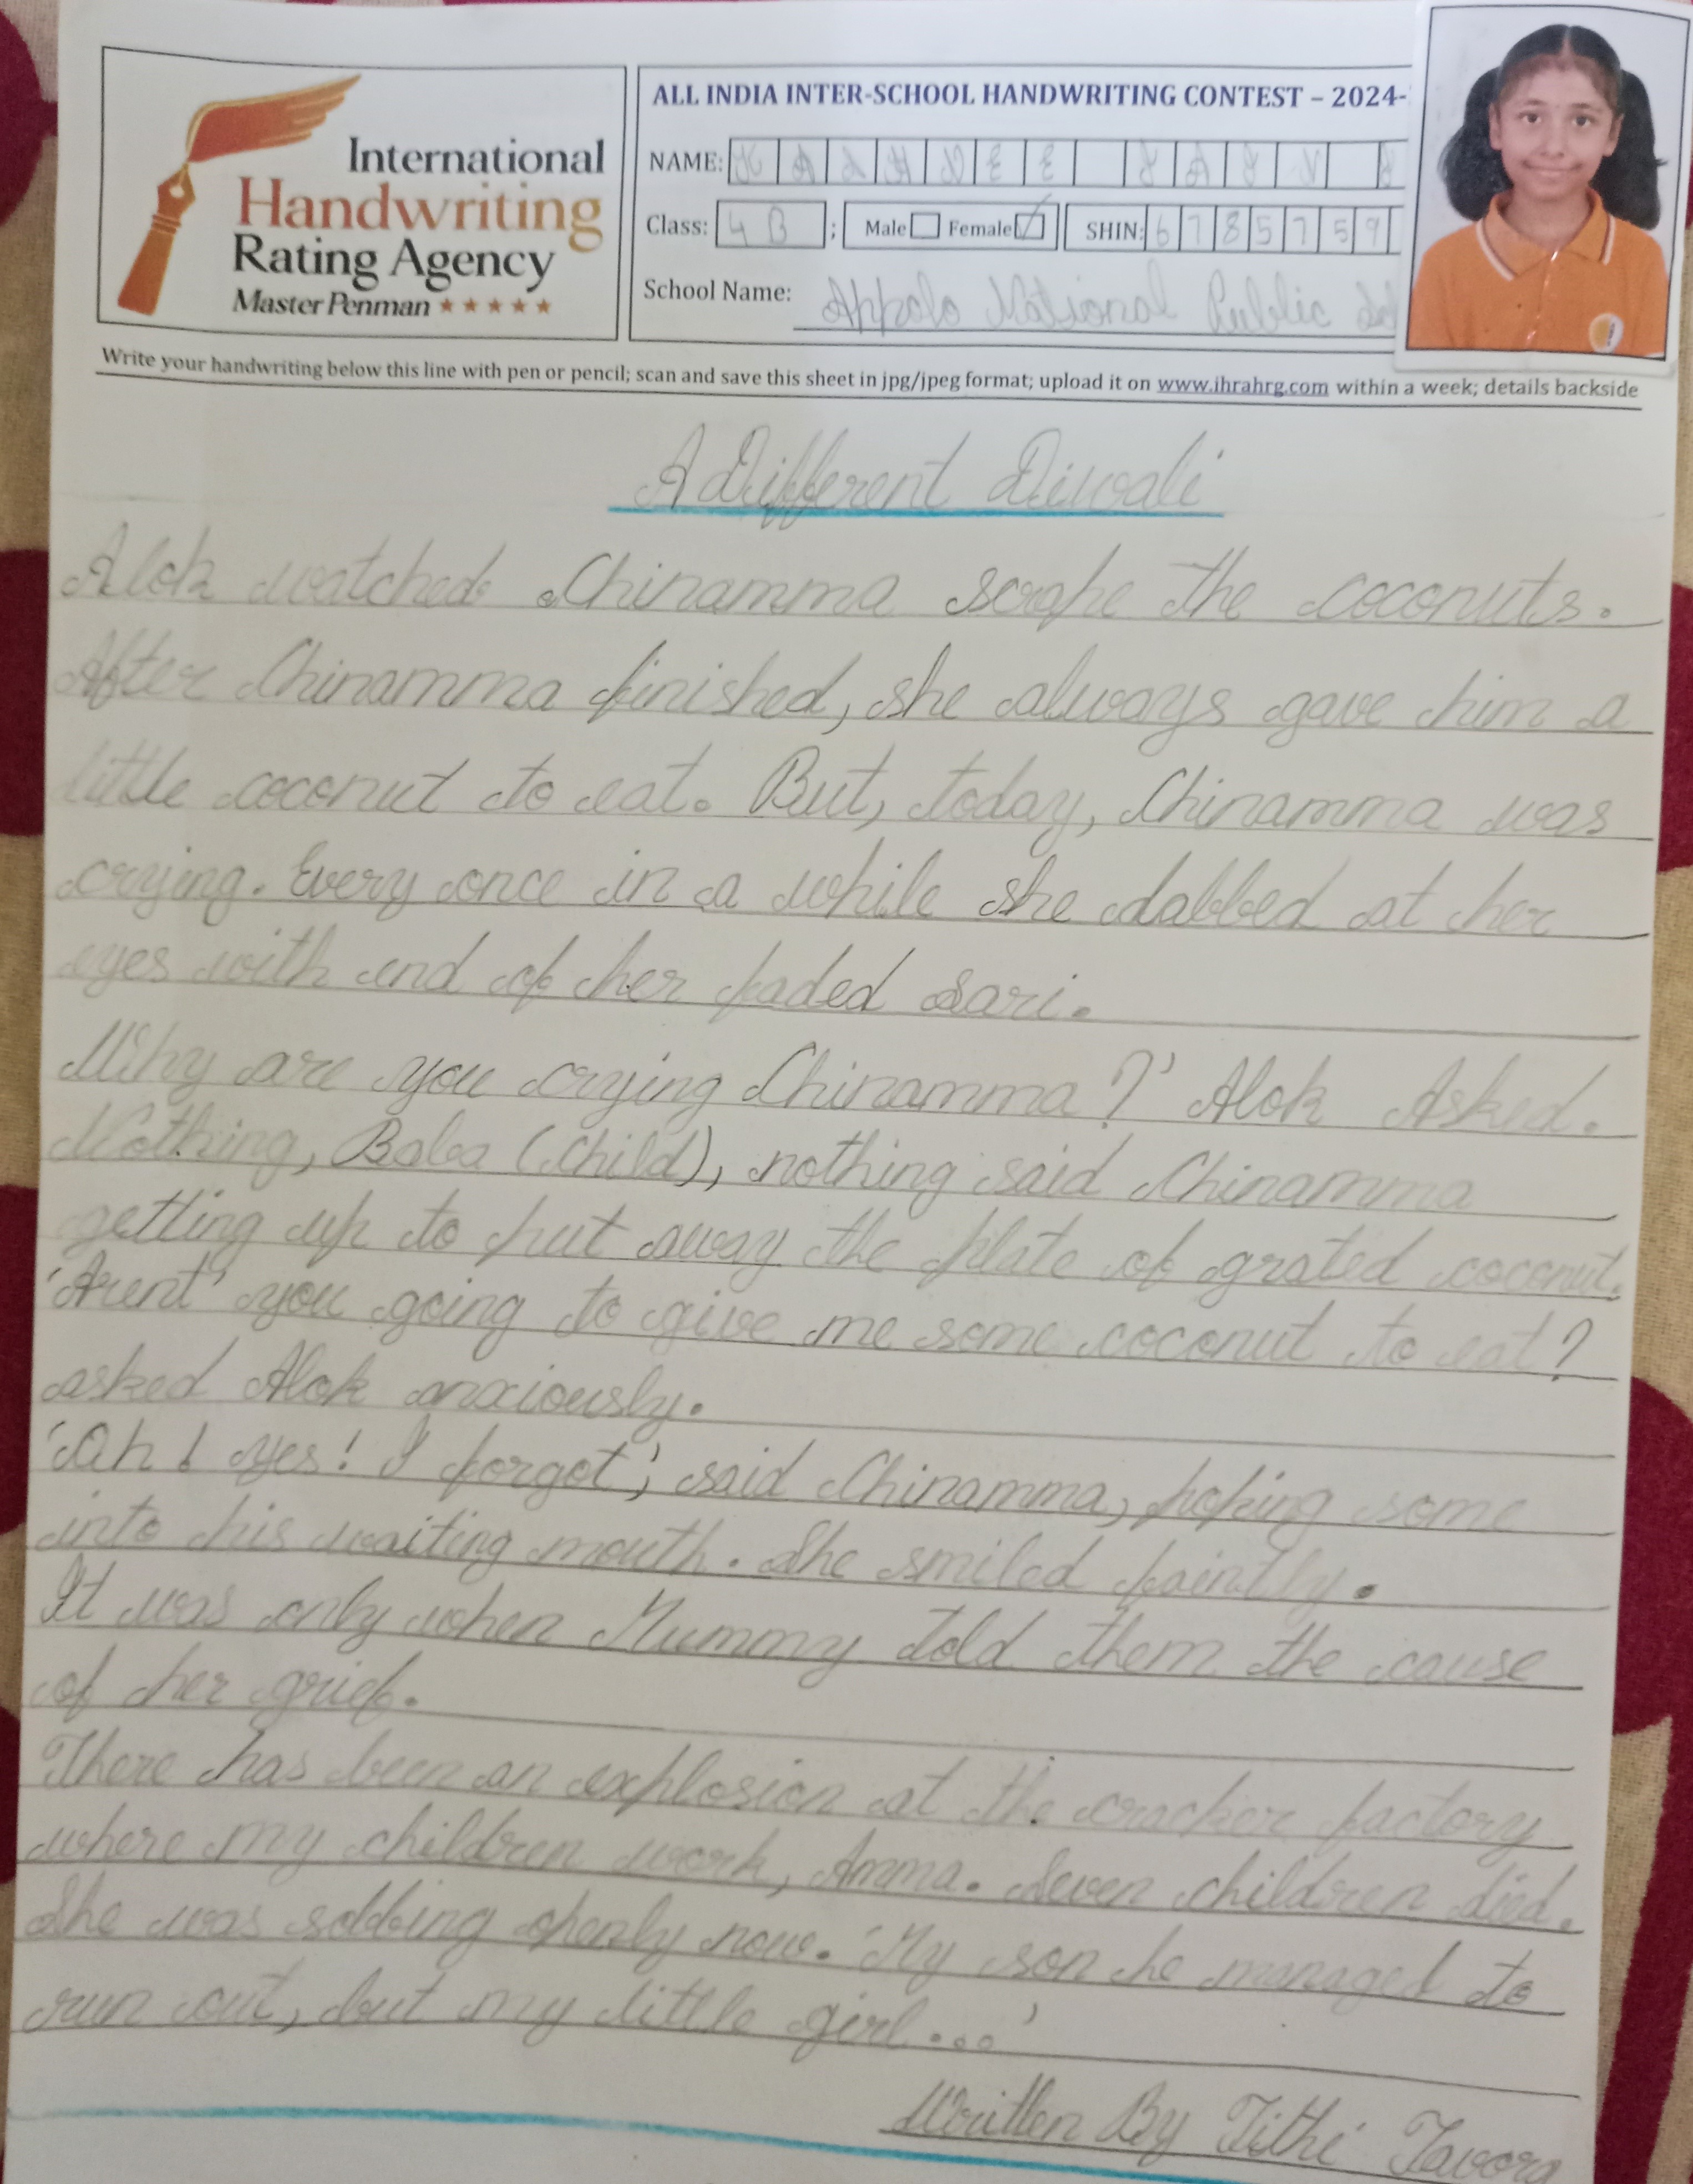 International
Handwriting
Rating Agency
Master Penman
ALL INDIA INTER-SCHOOL HANDWRITING CONTEST – 2024-
NAME:
Class: 4 B ; Male Female SHIN: 6 7 8 5 7 5 9
School Name: Appolo National Public Sch
Write your handwriting below this line with pen or pencil; scan and save this sheet in jpg/jpeg format; upload it on www.ihrahrg.com within a week; details backside
A Different Diwali
Alok watched Chinamma scrape the coconuts.
After Chinamma finished, she always gave him a
little coconut to eat. But, today, Chinamma was
crying. Every once in a while she dabbed at her
eyes with end of her faded sari.
Why are you crying Chinamma?' Alok Asked.
Nothing, Baba (Child), nothing said Chinamma
getting up to put away the plate of grated coconut.
'Arent' you going to give me some coconut to eat?
asked Alok anxiously.
'Oh! yes! I forgot', said Chinamma, poking some
into his waiting mouth. She smiled faintly.
It was only when Mummy told them the cause
of her grief.
There has been an explosion at the cracker factory
where my children work, Amma. Seven children died.
She was sobbing openly now. 'My son he managed to
run out, but my little girl...'
Written By Tithi Tavora